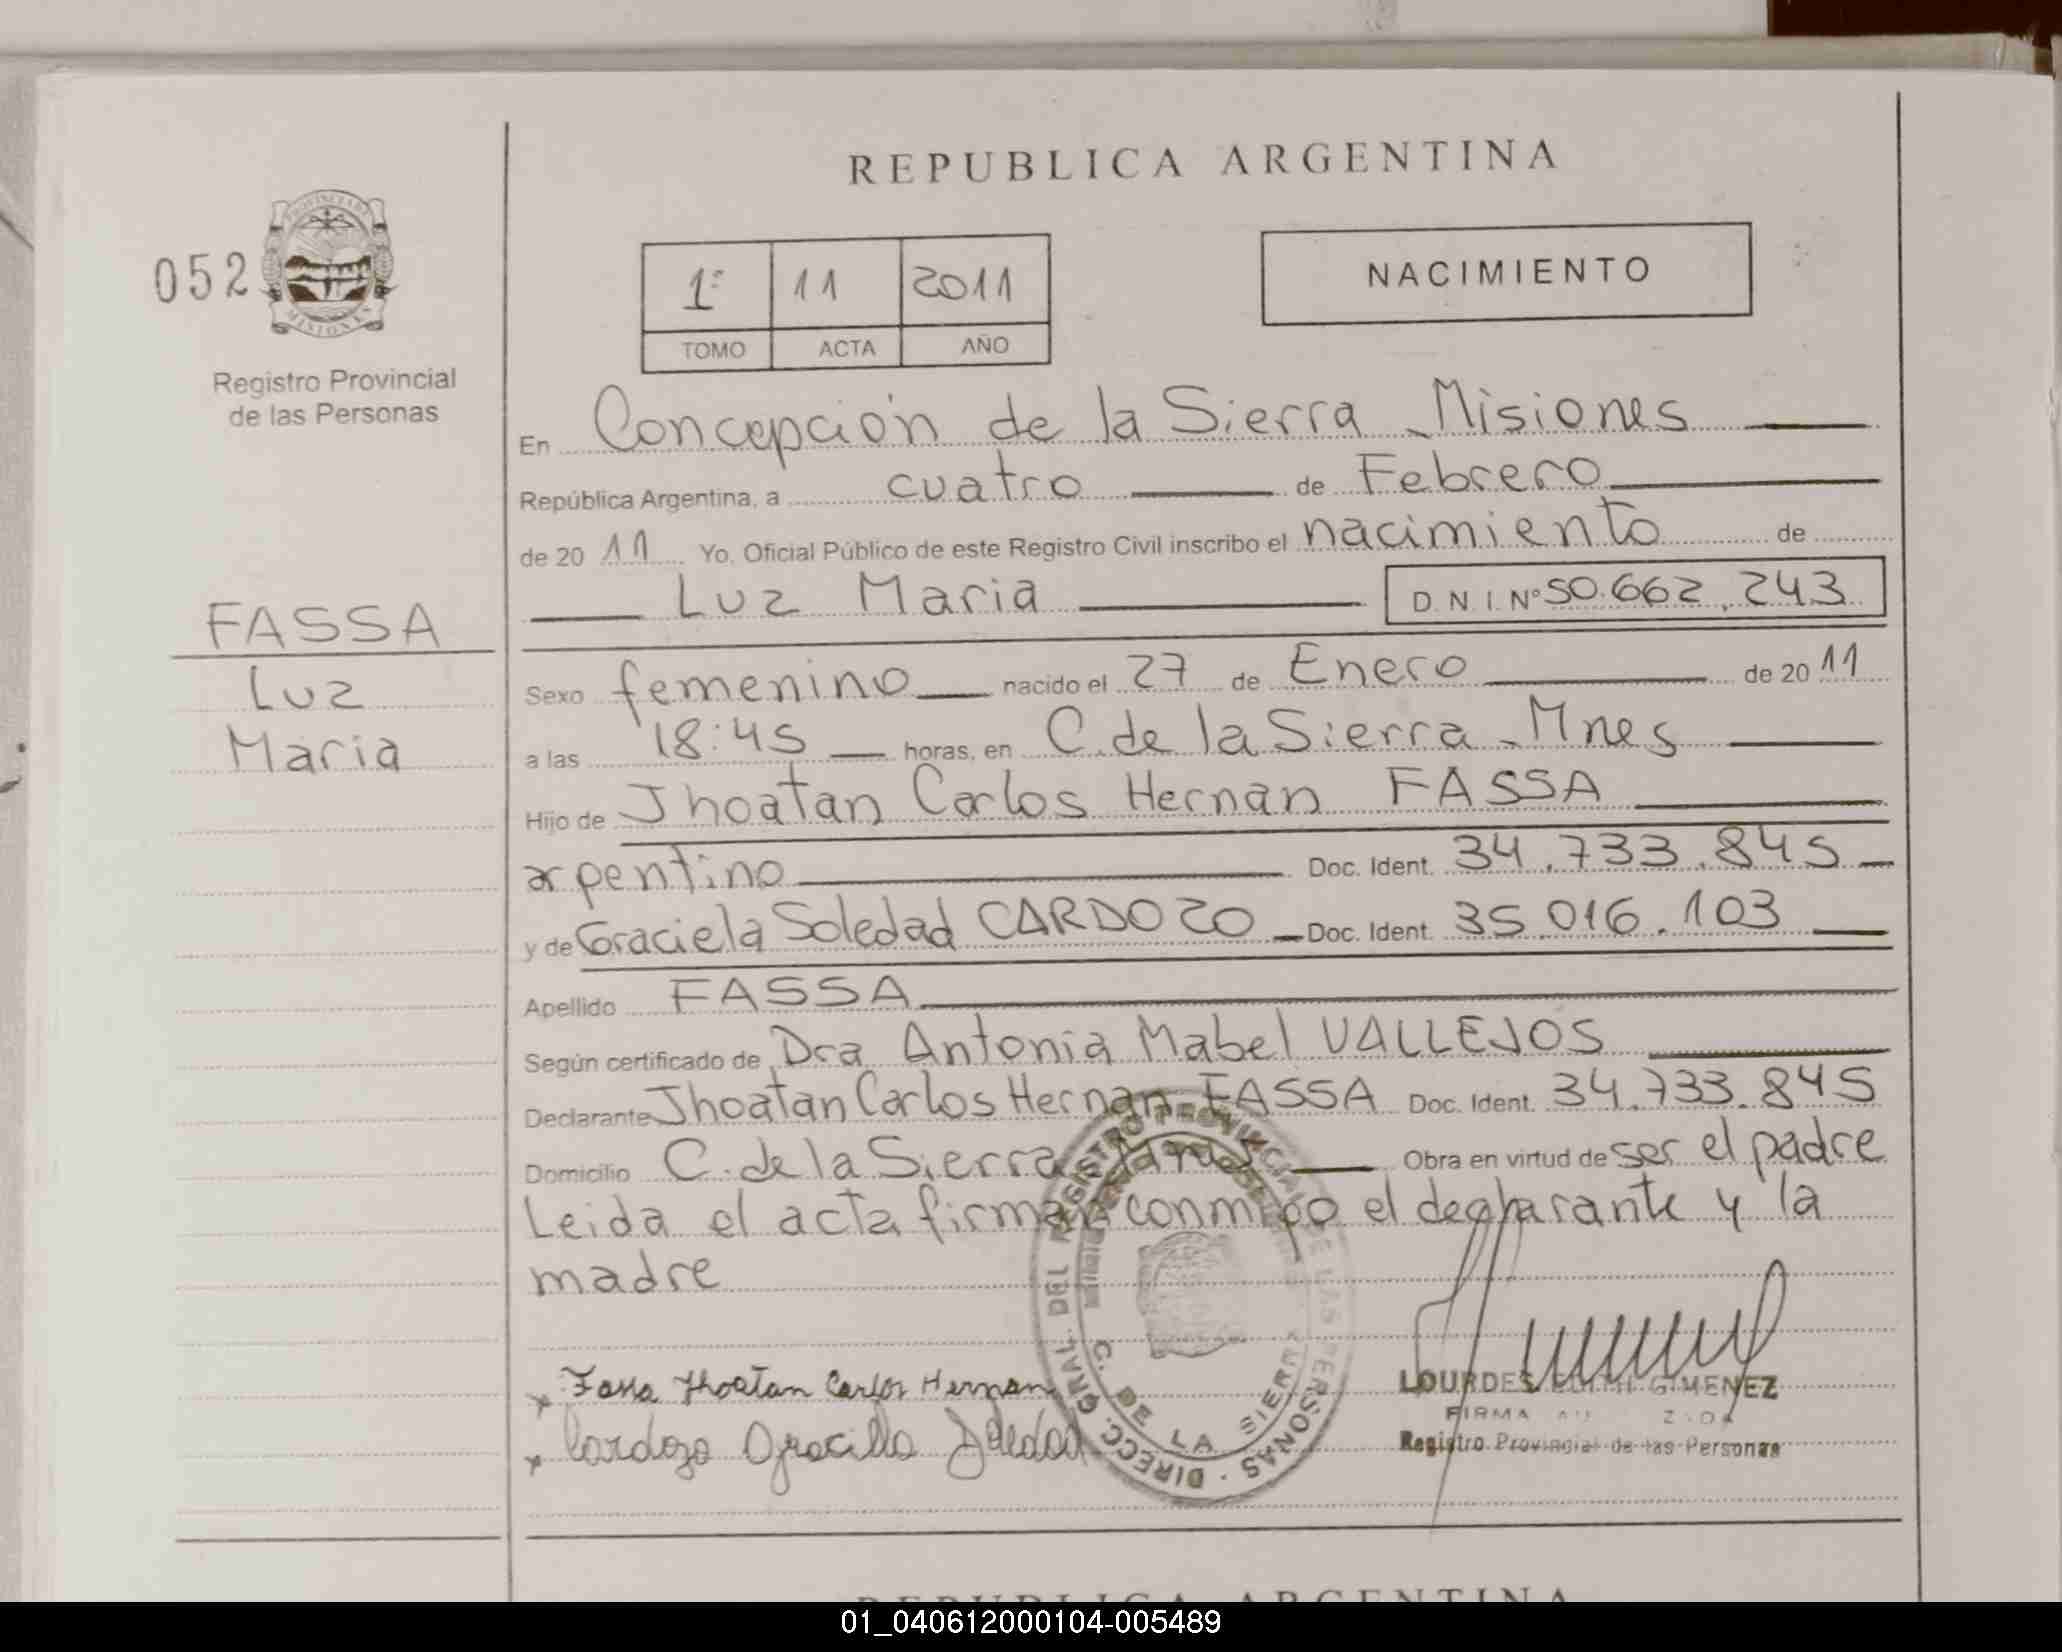 REPUBLICA ARGENTINA
052
PROVINCIA DE
MISIONES
Registro Provincial
de las Personas
1º 11 2011
TOMO ACTA AÑO
NACIMIENTO
En Concepción de la Sierra - Misiones
República Argentina, a cuatro de Febrero
de 20 11 Yo, Oficial Público de este Registro Civil inscribo el nacimiento de
Luz Maria D.N.I. Nº 50.662.243
FASSA
Luz
Maria
Sexo femenino nacido el 27 de Enero de 20 11
a las 18:45 horas, en C. de la Sierra - Mnes
Hijo de Jhoatan Carlos Hernan FASSA
argentino Doc. Ident. 34.733.845
y de Graciela Soledad CARDOZO Doc. Ident. 35.016.103
Apellido FASSA
Según certificado de Dra Antonia Mabel VALLEJOS
Declarante Jhoatan Carlos Hernan FASSA Doc. Ident. 34.733.845
Domicilio C. de la Sierra Mnes Obra en virtud de ser el padre
Leida el acta firman conmigo el declarante y la
madre
x Fassa Jhoatan Carlos Hernan
x Cardozo Graciela Soledad
DIRECC. GRAL. DEL REGISTRO PROVINCIAL DE LAS PERSONAS
C. DE LA SIERRA
LOURDES GIMENEZ
FIRMA
Registro Provincial de las Personas
REPUBLICA ARGENTINA
01_040612000104-005489